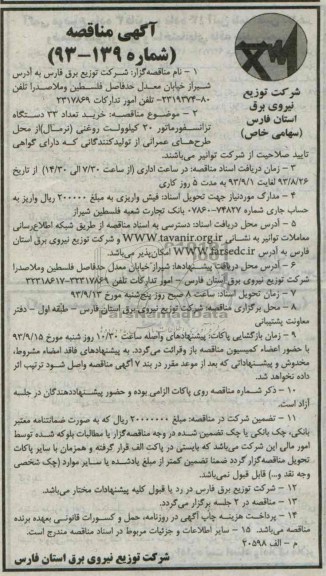 آگهی مناقصه
(شماره ۱۳۹-۹۳)
شرکت توزیع
نیروی برق
استان فارس
(سهامی خاص)
۱ - نام مناقصه‌گزار: شرکت توزیع برق فارس به آدرس
شیراز خیابان معدل حدفاصل فلسطین وملاصدرا تلفن
۸۰-۲۳۱۹۳۷۴- تلفن امور تدارکات ۲۳۱۷۸۶۹
۲ - موضوع مناقصه: خرید تعداد ۲۲ دستگاه
ترانسفورماتور ۲۰ کیلوولت روغنی (نرمال)از محل
طرح‌های عمرانی از تولیدکنندگانی که دارای گواهی
تایید صلاحیت از شرکت توانیر می‌باشند.
۳ - زمان دریافت اسناد مناقصه: در ساعت اداری (از ساعت ۷/۳۰ الی ۱۴/۳۰) از تاریخ
۹۳/۸/۲۶ لغایت ۹۳/۹/۱ به مدت ۵ روز کاری
۴ - مدارک موردنیاز جهت تحویل اسناد: فیش واریزی به مبلغ ۲۰۰۰۰۰ ریال واریز به
حساب جاری شماره ۷۴۸۲۷-۰۷۸۶۰ بانک تجارت شعبه فلسطین شیراز
۵ - آدرس محل دریافت اسناد: دسترسی به اسناد مناقصه از طریق شبکه اطلاع‌رسانی
معاملات توانیر به نشانی www.tavanir.org.ir و شرکت توزیع نیروی برق استان
فارس به آدرس www.farsedc.ir امکان‌پذیر می‌باشد.
۶ - آدرس محل دریافت پیشنهادها: شیراز خیابان معدل حدفاصل فلسطین وملاصدرا
شرکت توزیع نیروی برق استان فارس - امور تدارکات تلفن ۳۲۳۱۷۸۶۹-۳۲۳۱۸۶۱۷
۷ - زمان تحویل اسناد: ساعت ۸ صبح روز پنج‌شنبه مورخ ۹۳/۹/۱۳
۸ - محل برگزاری مناقصه: شرکت توزیع نیروی برق استان فارس - طبقه اول - دفتر
معاونت پشتیبانی
۹ - زمان بازگشایی پاکات: پیشنهادهای واصله ساعت ۱۰/۳۰ روز شنبه مورخ ۹۳/۹/۱۵
با حضور اعضاء کمیسیون مناقصه باز وقرائت می‌گردد. به پیشنهادهای فاقد امضاء مشروط،
مخدوش و پیشنهاداتی که بعد از موعد مقرر در بند ۷ آگهی مناقصه واصل شود ترتیب اثر
داده نخواهد شد.
۱۰ - ذکر شماره مناقصه روی پاکات الزامی بوده و حضور پیشنهاددهندگان در جلسه
آزاد است.
۱۱ - تضمین شرکت در مناقصه: مبلغ ۲۰۰۰۰۰۰۰ ریال که به صورت ضمانتنامه معتبر
بانکی، چک بانکی یا چک تضمین شده در وجه مناقصه‌گزار یا مطالبات بلوکه شده توسط
امور مالی این شرکت می‌باشد که بایستی در پاکت الف قرار گرفته و همزمان با سایر پاکات
تحویل مناقصه‌گزار گردد ضمنا تضمین کمتر از مبلغ یادشده یا سایر موارد (چک شخصی
وجه نقد و...) قابل قبول نمی‌باشد.
۱۲ - شرکت توزیع برق فارس در رد یا قبول کلیه پیشنهادات مختار می‌باشد.
۱۳ - مناقصه در ۲ جلسه برگزار می‌گردد.
۱۴ - پرداخت هزینه چاپ آگهی در روزنامه، حمل و کسورات قانونی بعهده برنده
مناقصه می‌باشد. ۱۵ - سایر اطلاعات و جزئیات مربوط در اسناد مناقصه مندرج است.
م الف ۲۰۵۹۸
شرکت توزیع نیروی برق استان فارس